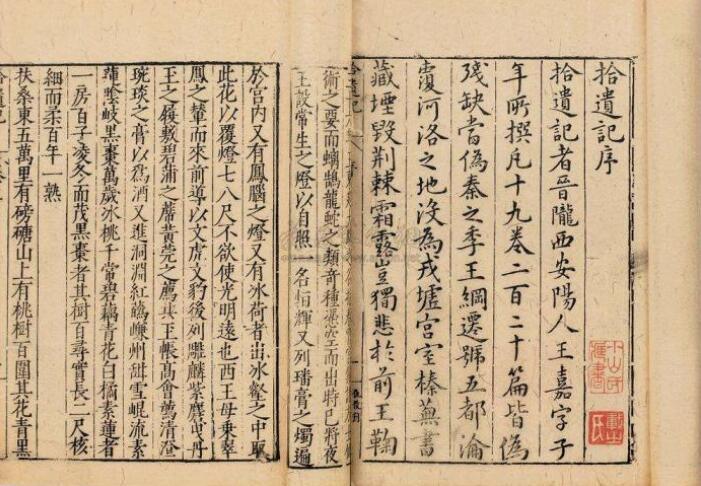 拾遺記序
拾遺記者晉隴西安陽人王嘉字子
年所撰凡十九卷二百二十篇皆為
殘缺當偽秦之季王綱遷號五都淪
覆河洛之地沒為戎墟宮室榛蕪書
藏堙毀荆棘霜露豈獨悲於前王鞠
拾遺記
術之要而螭鵠龍蛇之類奇種憑空而出時已將夜
王設常生之燈以自照一名恒輝又列璠膏之燭遍
於宮内又有鳳腦之燈又有冰荷者出冰壑之中取
此花以覆燈七八尺不欲使光明遠也西王母乗翠
鳳之輦而來前導以文虎文豹後列雕麟紫麏曵丹
玉之履敷碧蒲之席黄莞之薦共玉帳高會薦清澄
琬琰之膏以為酒又進洞淵紅蘤嵊州甜雪崐流素
蓮陰岐黑棗萬歲冰桃千常碧藕青花白橘素蓮者
一房百子凌冬而茂黑棗者其樹百尋實長二尺核
細而柔百年一熟
扶桑東五萬里有磅磄山上有桃樹百圍其花青黑